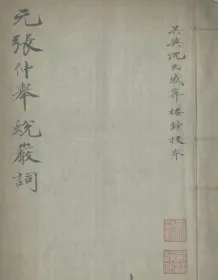 元張仲舉蛻巖詞
吳興沈氏感峯樓鈔校本